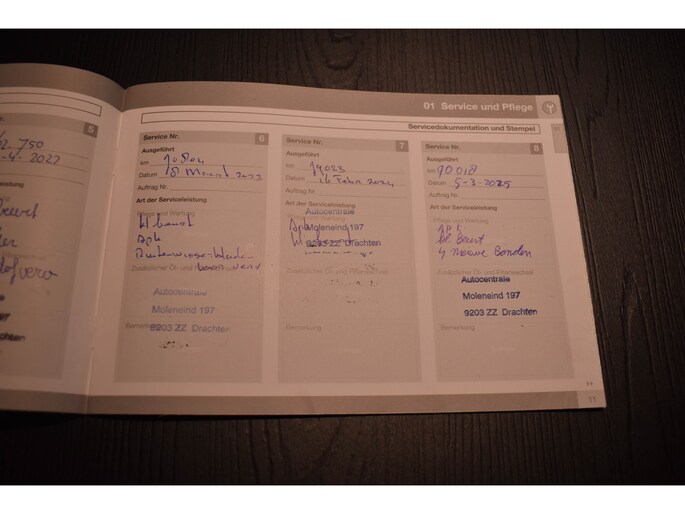 01 Service und Pflege
Servicedokumentation und Stempel
5
750
-4-2022
Serviceleistung
beurt
Service Nr. 6
Ausgeführt
km
Datum 18 2023
Auftrag Nr.
Art der Serviceleistung
Pflege und Wartung
kl beurt
Apk
Ruitenwisserbladen
Zusätzlicher Öl- und
Autocentrale
Moleneind 197
Bemerkung 9203 ZZ Drachten
Service Nr. 7
Ausgeführt
km 79023
Datum 16 Febr 2024
Auftrag Nr.
Art der Serviceleistung
Autocentrale
Apk Moleneind 197
9203 ZZ Drachten
Zusätzlicher Öl- und Pflegewechsel
Bemerkung
Service Nr. 8
Ausgeführt
km 90.018
Datum 5-3-2025
Auftrag Nr.
Art der Serviceleistung
Pflege und Wartung
Apk
kl Beurt
4 nieuwe Banden
Zusätzlicher Öl- und Pflegewechsel
Autocentrale
Moleneind 197
9203 ZZ Drachten
Bemerkung
11